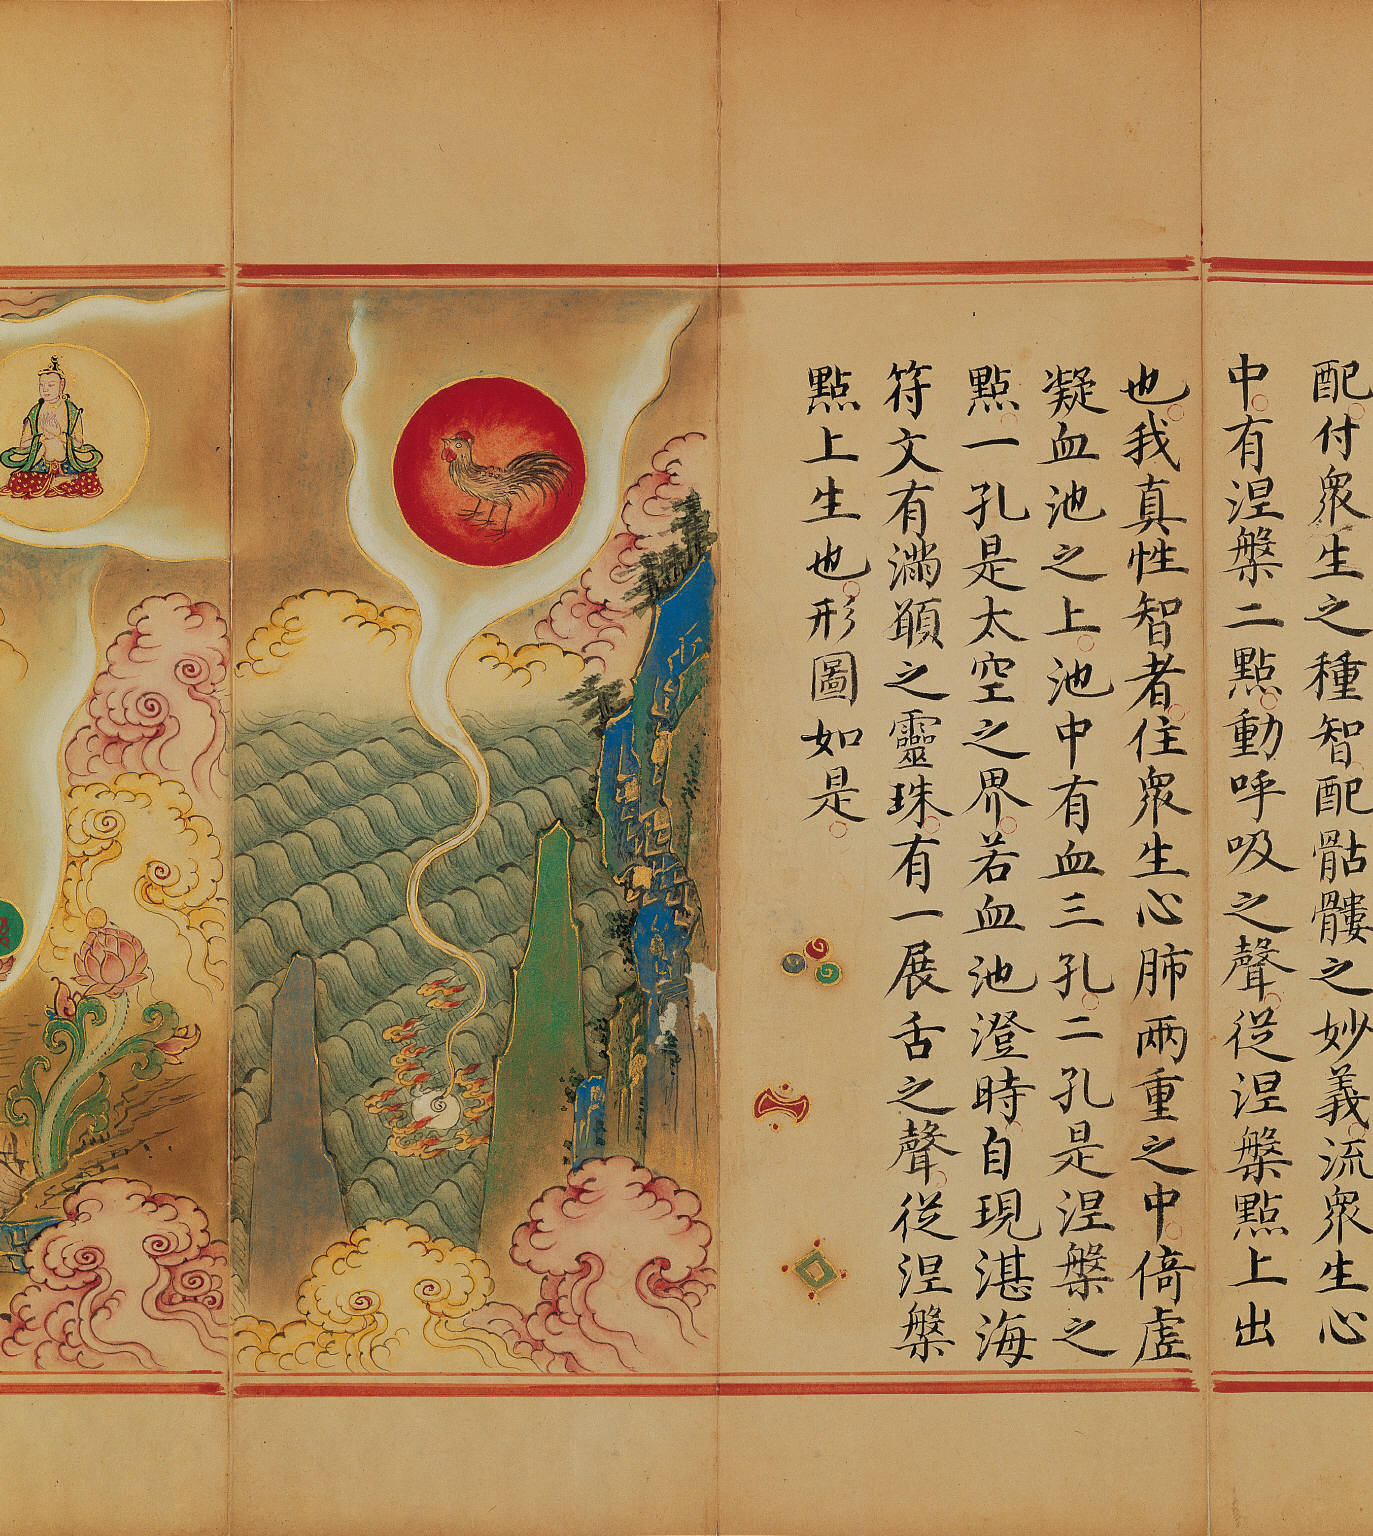 配付衆生之種智配骷髏之妙義流衆生心
中有涅槃二點動呼吸之聲從涅槃點上出
也我真性智者住衆生心肺兩重之中倚虛
凝血池之上池中有血三孔二孔是涅槃之
點一孔是太空之界若血池澄時自現湛海
符文有滿願之靈珠有一展舌之聲從涅槃
點上生也形圖如是